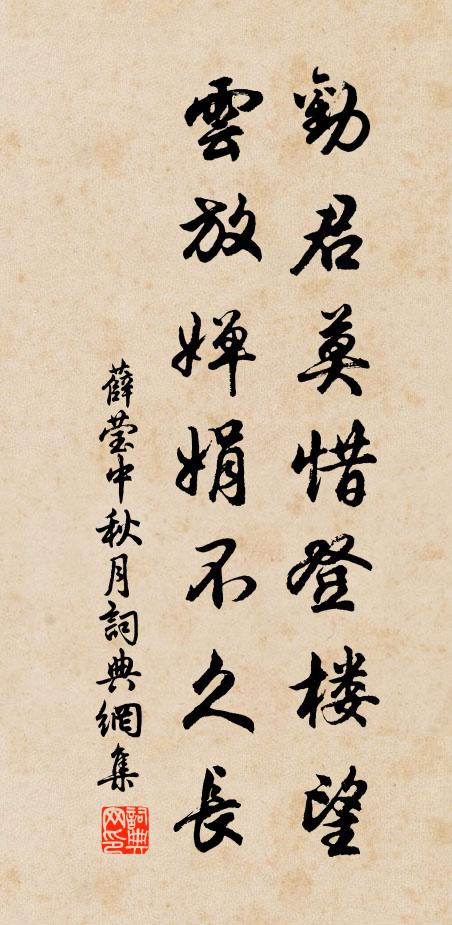 勸君莫惜登楼望
雲放嬋娟不久長
薛瑩中秋月詞典網集
詞典网印